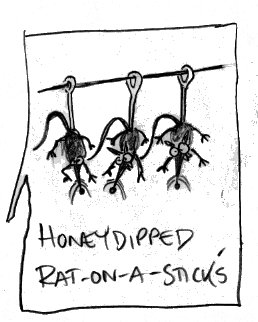 HONEYDIPPED
RAT-ON-A-STICK'S